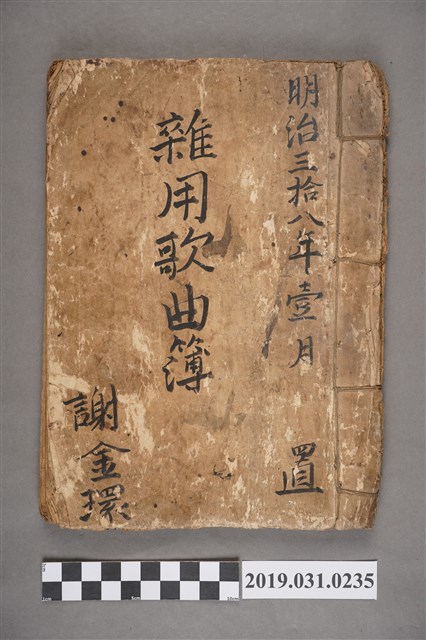 明治三拾八年壹月 置
雜用歌曲簿
謝金環
2019.031.0235